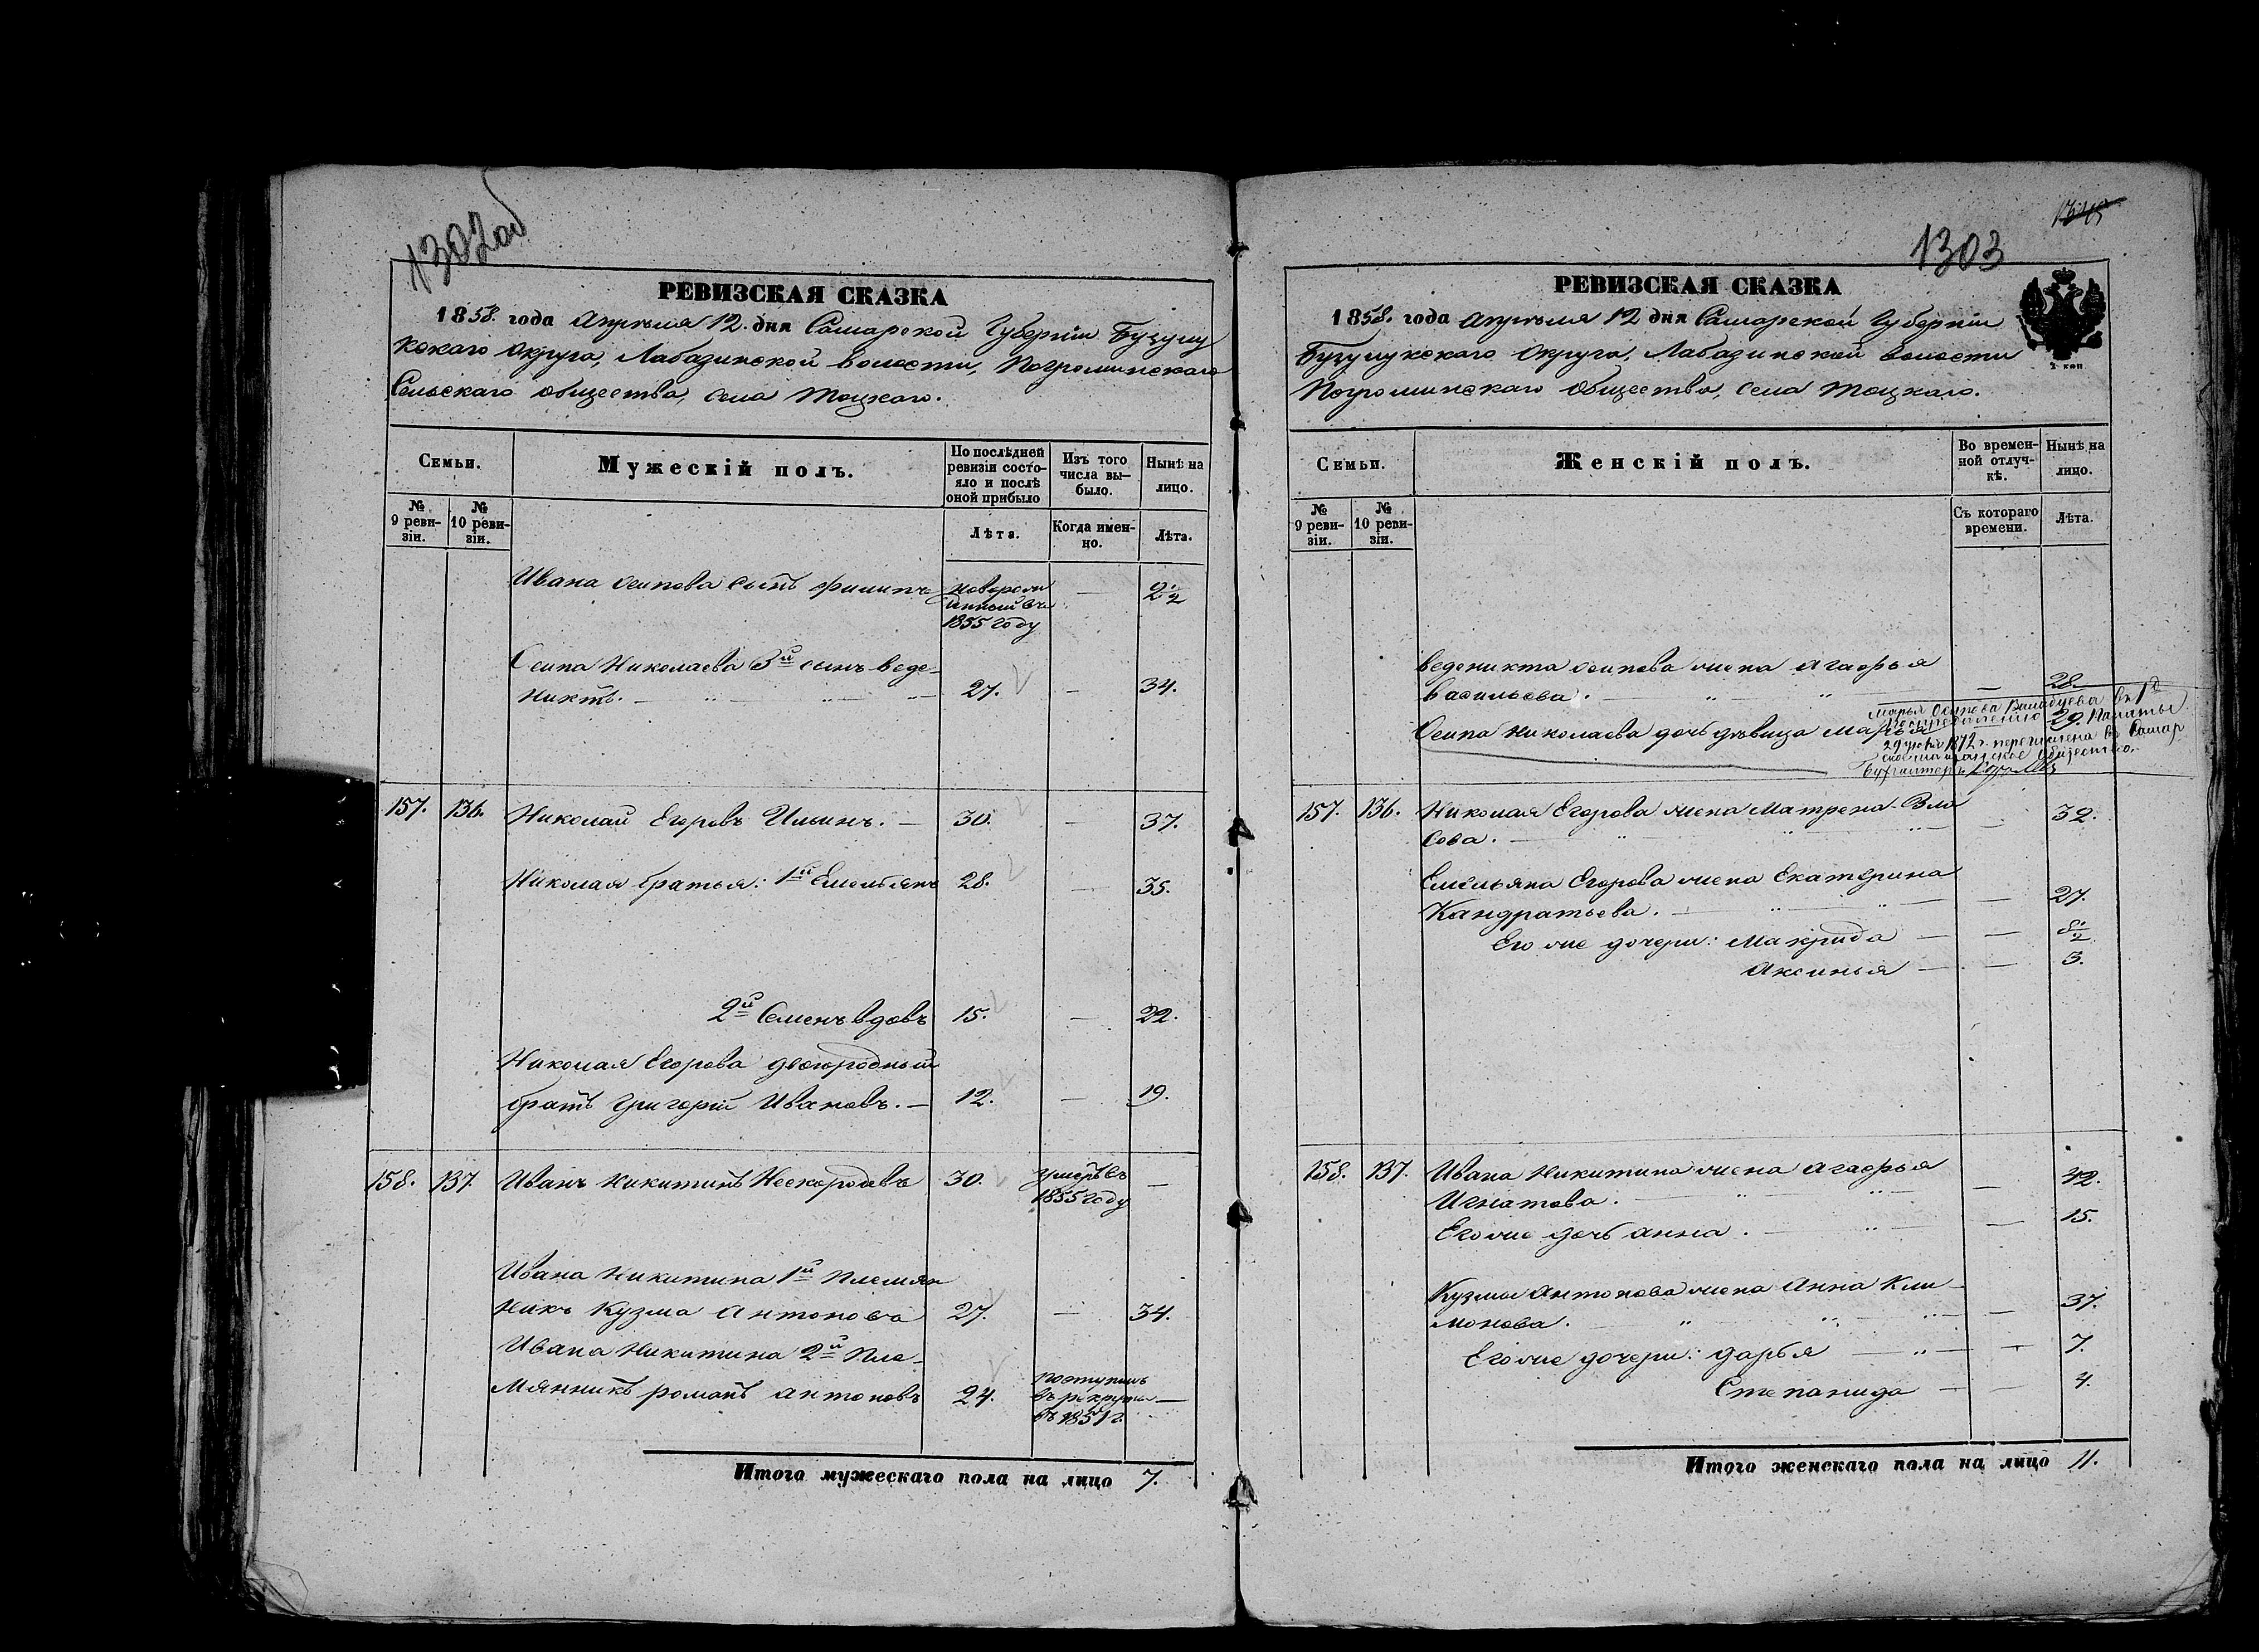 1302об
РЕВИЗСКАЯ СКАЗКА
1858. года Апреля 12. дня Самарской Губернiи Бузулу
кскаго округа, Лабазинской волости, Погроминскаго
Сельскаго общества, села Тоцкаго.
Семьи.
Мужескiй полъ.
По послѣдней ревизiи состо-
яло и послѣ
оной прибыло
Изъ того
числа вы-
было.
Нынѣ на
лицо.
№ 9 реви-
зiи.
№ 10 реви-
зiи.
Лѣта.
Когда имен-
но.
Лѣта.
Ивана Осипова сынъ Филипъ новорож
денный въ
1855 году — 2 1/2
Осипа Николаева 3й сынъ Веде-
никтъ. — 27. — 34.
157. 136. Николай Егоровъ Ильинъ. — 30. — 37.
Николая братья: 1й Емельянъ 28. — 35.
2й Семенъ вдовъ 15. — 22.
Николая Егорова двоюродный
братъ Григорiй Ивановъ. — 12. — 19.
158. 137. Иванъ Никитинъ Нескородовъ 30. умеръ въ
1855 году —
Ивана Никитина 1й племян
никъ Кузма Антоновъ 27. — 34.
Ивана Никитина 2й пле-
мянникъ Романъ Антоновъ 24. поступилъ
въ рекруты
въ 1851 г. —
Итого мужескаго пола на лицо 7.
1303
РЕВИЗСКАЯ СКАЗКА
1858. года Апреля 12 дня Самарской Губернiи
Бузулукскаго округа, Лабазинской волости
Погроминскаго общества, села Тоцкаго.
2 коп
Семьи.
Женскiй полъ.
Во времен-
ной отлуч-
кѣ.
Нынѣ на
лицо.
№ 9 реви-
зiи.
№ 10 реви-
зiи.
Съ котораго
времени.
Лѣта.
Веденикта Осипова жена Агафья
Васильева. — 28.
Осипа Николаева дочь девица Марья 29.
Марья Осипова въ 1й
Палаты
1872 г. перечислена въ Самар
ское общество.
Бухгалтеръ
157. 136. Николая Егорова жена Матрена Вла
сова. — 32.
Емельяна Егорова жена Екатерина
Кандратьева. — 27.
Его же дочери: Макрида — 8 1/2
Аксинья — 3.
158. 137. Ивана Никитина жена Агафья
Игнатова. — 42.
Его же дочь Анна. — 15.
Кузмы Антонова жена Анна Кли-
монова. — 37.
Его же дочери: Дарья — 7.
Степанида — 4.
Итого женскаго пола на лицо 11.